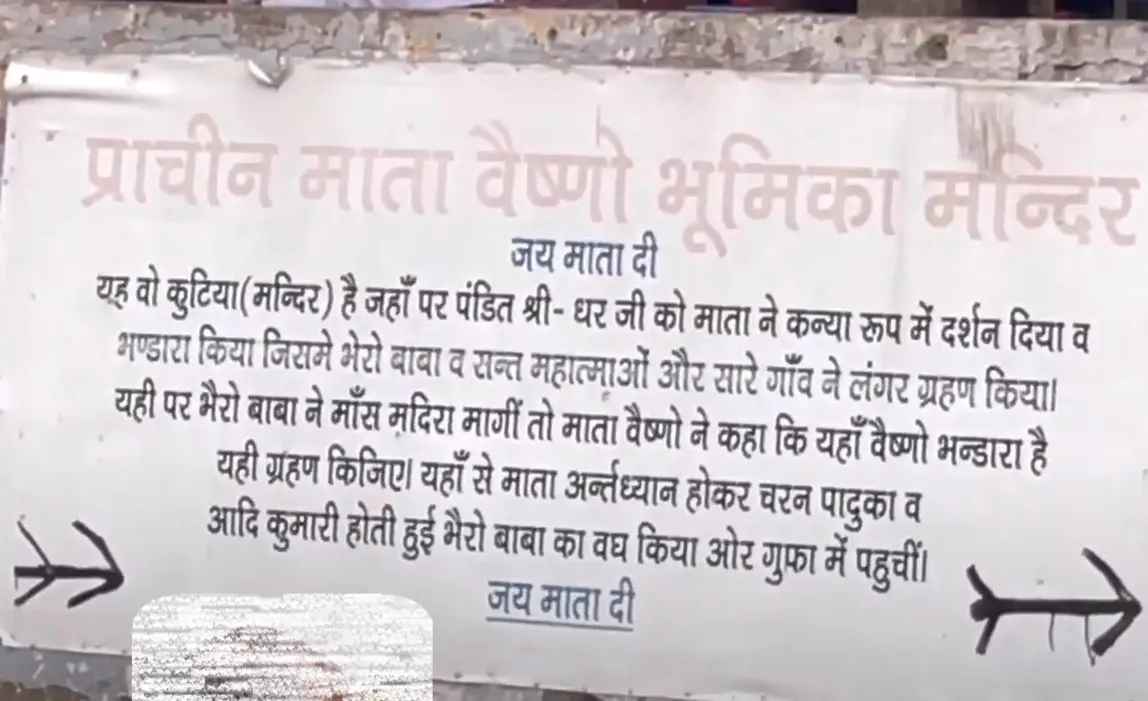 प्राचीन माता वैष्णो भूमिका मन्दिर
जय माता दी
यह वो कुटिया(मन्दिर) है जहाँ पर पंडित श्री- धर जी को माता ने कन्या रूप में दर्शन दिया व
भण्डारा किया जिसमे भेरो बाबा व सन्त महात्माओं और सारे गाँव ने लंगर ग्रहण किया।
यही पर भैरो बाबा ने माँस मदिरा मागीं तो माता वैष्णो ने कहा कि यहाँ वैष्णो भन्डारा है
यही ग्रहण किजिए। यहाँ से माता अर्न्तध्यान होकर चरन पादुका व
आदि कुमारी होती हुई भैरो बाबा का वघ किया ओर गुफा में पहुचीं।
जय माता दी